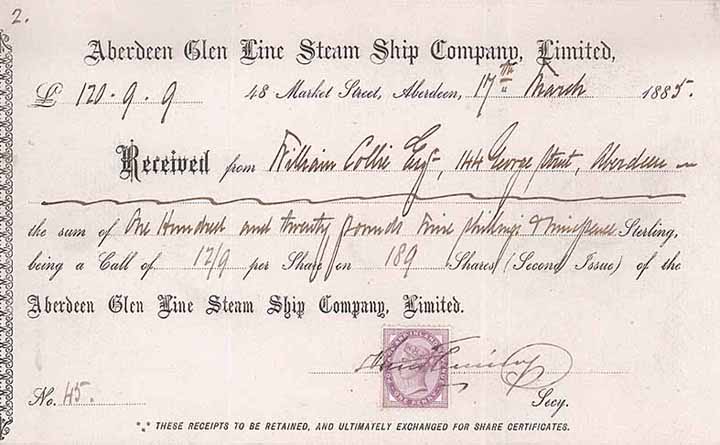 2.
Aberdeen Glen Line Steam Ship Company, Limited,
£ 120 . 9 . 9 48 Market Street, Aberdeen, 17th March 1885.
Received from William Collie Esqr, 144 George Street, Aberdeen
the sum of One Hundred and twenty pounds Nine shillings & Ninepence Sterling,
being a Call of 12/9 per Share on 189 Shares (Second Issue) of the
Aberdeen Glen Line Steam Ship Company, Limited.
No. 45. Secy.
THESE RECEIPTS TO BE RETAINED, AND ULTIMATELY EXCHANGED FOR SHARE CERTIFICATES.